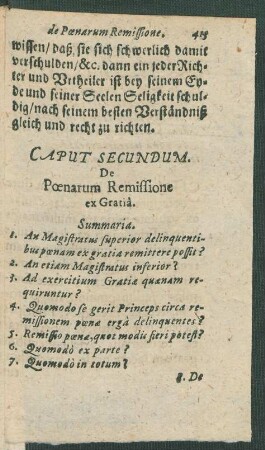 de Pœnarum Remissione. 413
wissen / daß sie sich schwerlich damit
verschulden / &c. dann ein jeder Rich-
ter und Vrtheiler ist bey seinem Ey-
de und seiner Seelen Seligkeit schul-
dig / nach seinem besten Verständniß
gleich und recht zu richten.
CAPUT SECUNDUM.
De
Pœnarum Remissione
ex Gratiâ.
Summaria.
1. An Magistratus superior delinquenti-
bus pœnam ex gratia remittere possit?
2. An etiam Magistratus inferior?
3. Ad exercitium Gratiæ quanam re-
quiruntur?
4. Quomodo se gerit Princeps circa re-
missionem pœnæ ergà delinquentes?
5. Remissio pœnæ, quot modis fieri potest?
6. Quomodò ex parte?
7. Quomodò in totum?
8. De